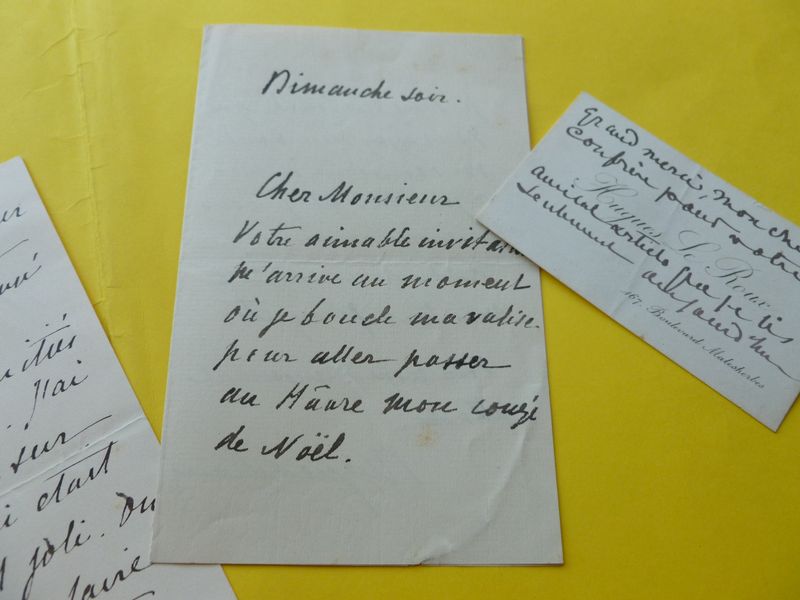 Dimanche soir.
Cher Monsieur
Votre aimable invitation
m'arrive au moment
où je boucle ma valise
pour aller passer
au Hâvre mon congé
de Noël.
Grand merci, mon cher
confrère pour votre
amical article que je lis
seulement aujourd'hu
Hugues Le Roux
167, Boulevard Malesherbes
J'ai
sur
était
joli. On
faire